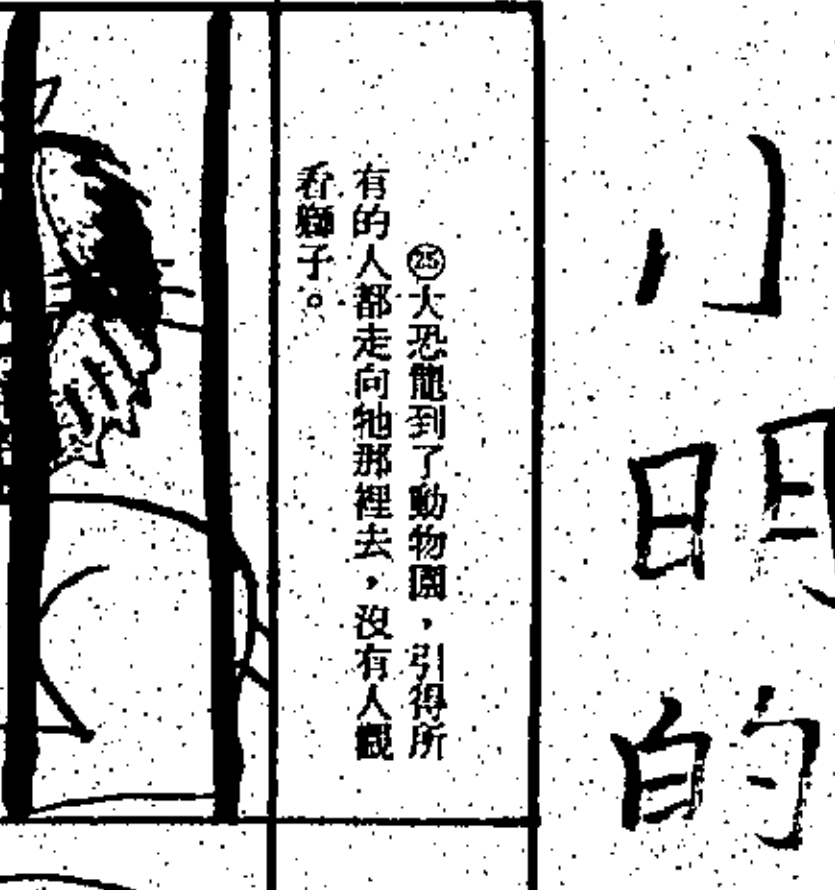 小明的
㉕大恐龍到了動物園，引得所
有的人都走向牠那裡去，沒有人觀
看獅子。